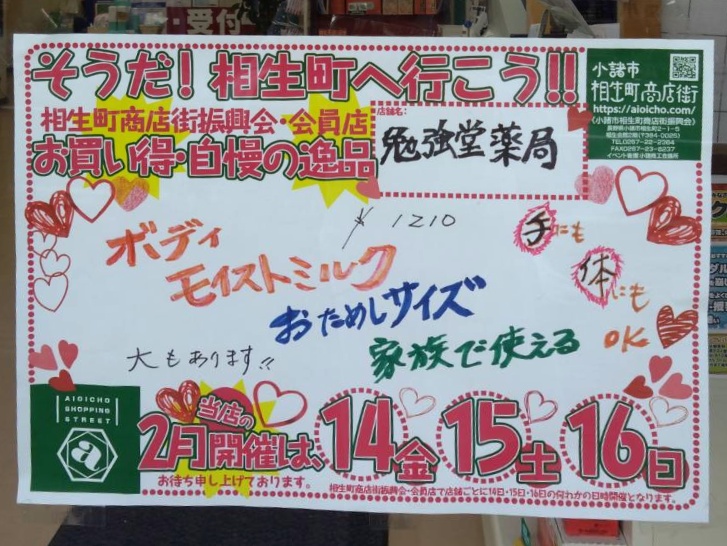 受付
そうだ！相生町へ行こう!!
相生町商店街振興会・会員店
お買い得・自慢の逸品
店舗名：
勉強堂薬局
小諸市
相生町商店街
https://aioicho.com/
《小諸市相生町商店街振興会》
長野県小諸市相生町2-1-5
TEL0267-22-2264
FAX0267-23-6237
ボディ
モイストミルク
¥1210
手にも
体にも
OK
おためしサイズ
家族で使える
大もあります!!
AIOICHO
SHOPPING
STREET
当店の
2月開催は、14金 15土 16日
お待ち申し上げております。
相生町商店街振興会・会員店で店舗ごとに14日・15日・16日の何れかの日時開催となります。